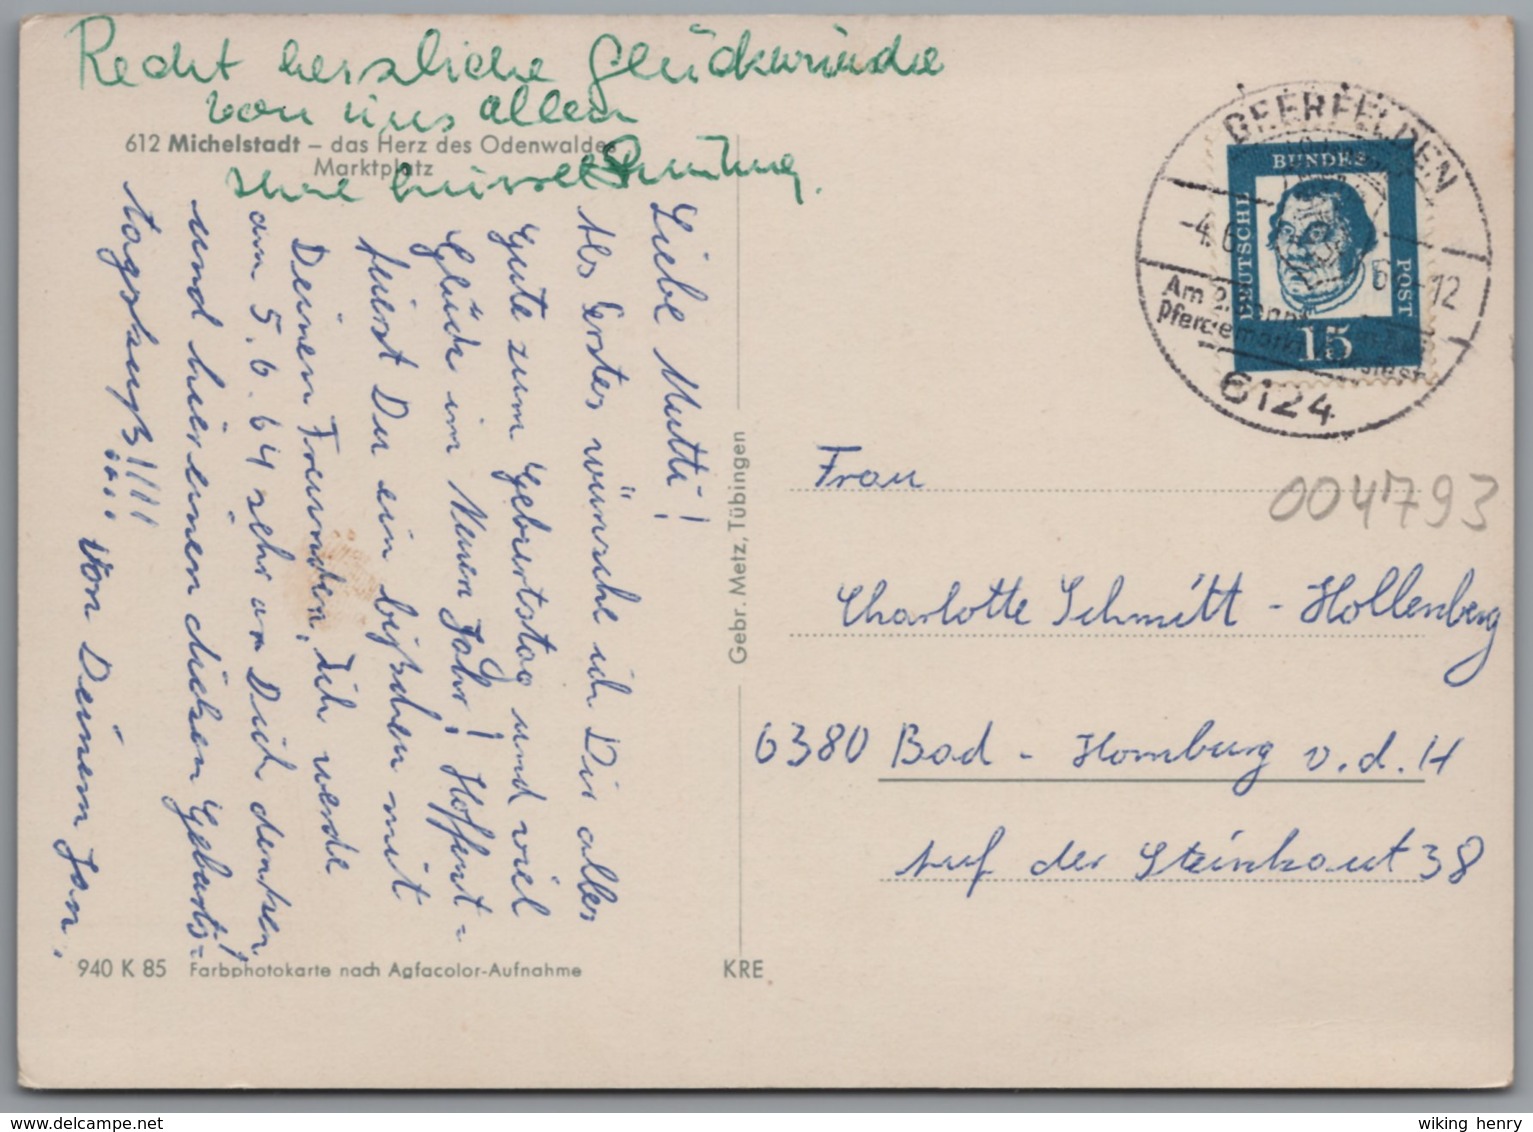 Recht herzliche Glückwünsche
von uns allen
612 Michelstadt – das Herz des Odenwaldes
Marktplatz
Liebe Mutti!
Als Erstes wünsche ich Dir alles
Gute zum Geburtstag und viel
Glück im Neuen Jahr! Hoffent-
feierst Du ein bißchen mit
Deinen Freunden. Ich werde
am 5.6.64 sehr an Dich denken
und hier einen dicken Geburts-
tagskuß!!!!
von Deinem Jan.
940 K 85 Farbphotokarte nach Agfacolor-Aufnahme
KRE
Gebr. Metz, Tübingen
BEERFELDEN
-4.6. -12
Am 2.
Pferdemarkt
6124
DEUTSCHE
BUNDES
POST
15
Frau
004793
Charlotte Schmitt - Hollenberg
6380 Bad - Homburg v.d.H
Auf der Steinkaut 38
www.delcampe.net
wiking henry